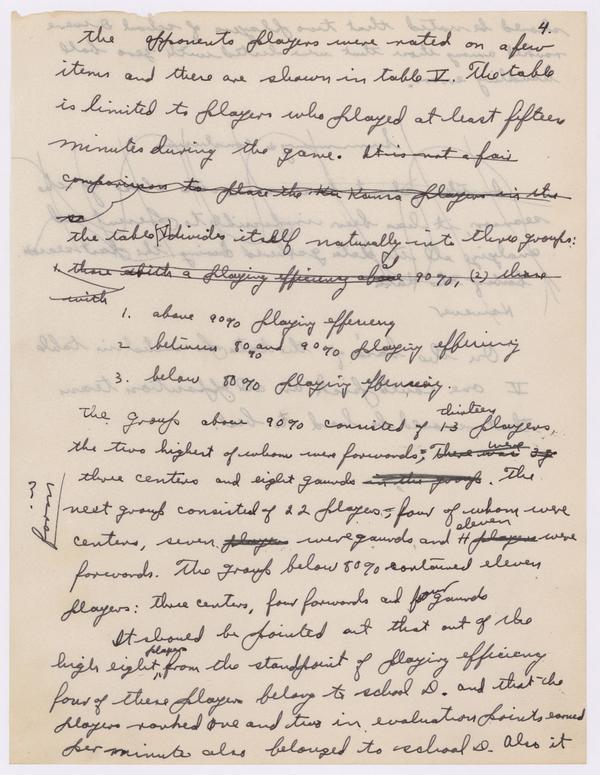 4.
the opponents players were rated on a few
items and these are shown in table V. The table
is limited to players who played at least fifteen
minutes during the game. It is not a fair
comparison to place the Kansa players in the
the table V divides itself naturally into three groups:
1. those with a playing efficiency above 90%, (2) those
with
1. above 90% playing effeciency
2. between 80% and 90% playing effeciency
3. below 80% playing effeciency.
The group above 90% consisted of 13 thirteen players,
the two highest of whom were forwards, There were
three centers and eight gaurds in the group. The
next group consisted of 22 players, four of whom were
centers, seven players were gaurds and 11 eleven players were
forwards. The group below 80% contained eleven
players: three centers, four forwards and four gaurds
It should be pointed out that out of the
high eight players, from the standpoint of playing efficiency
four of these players belong to school D. and that the
players ranked one and two in evaluation points earned
per minute also belonged to school D. Also it